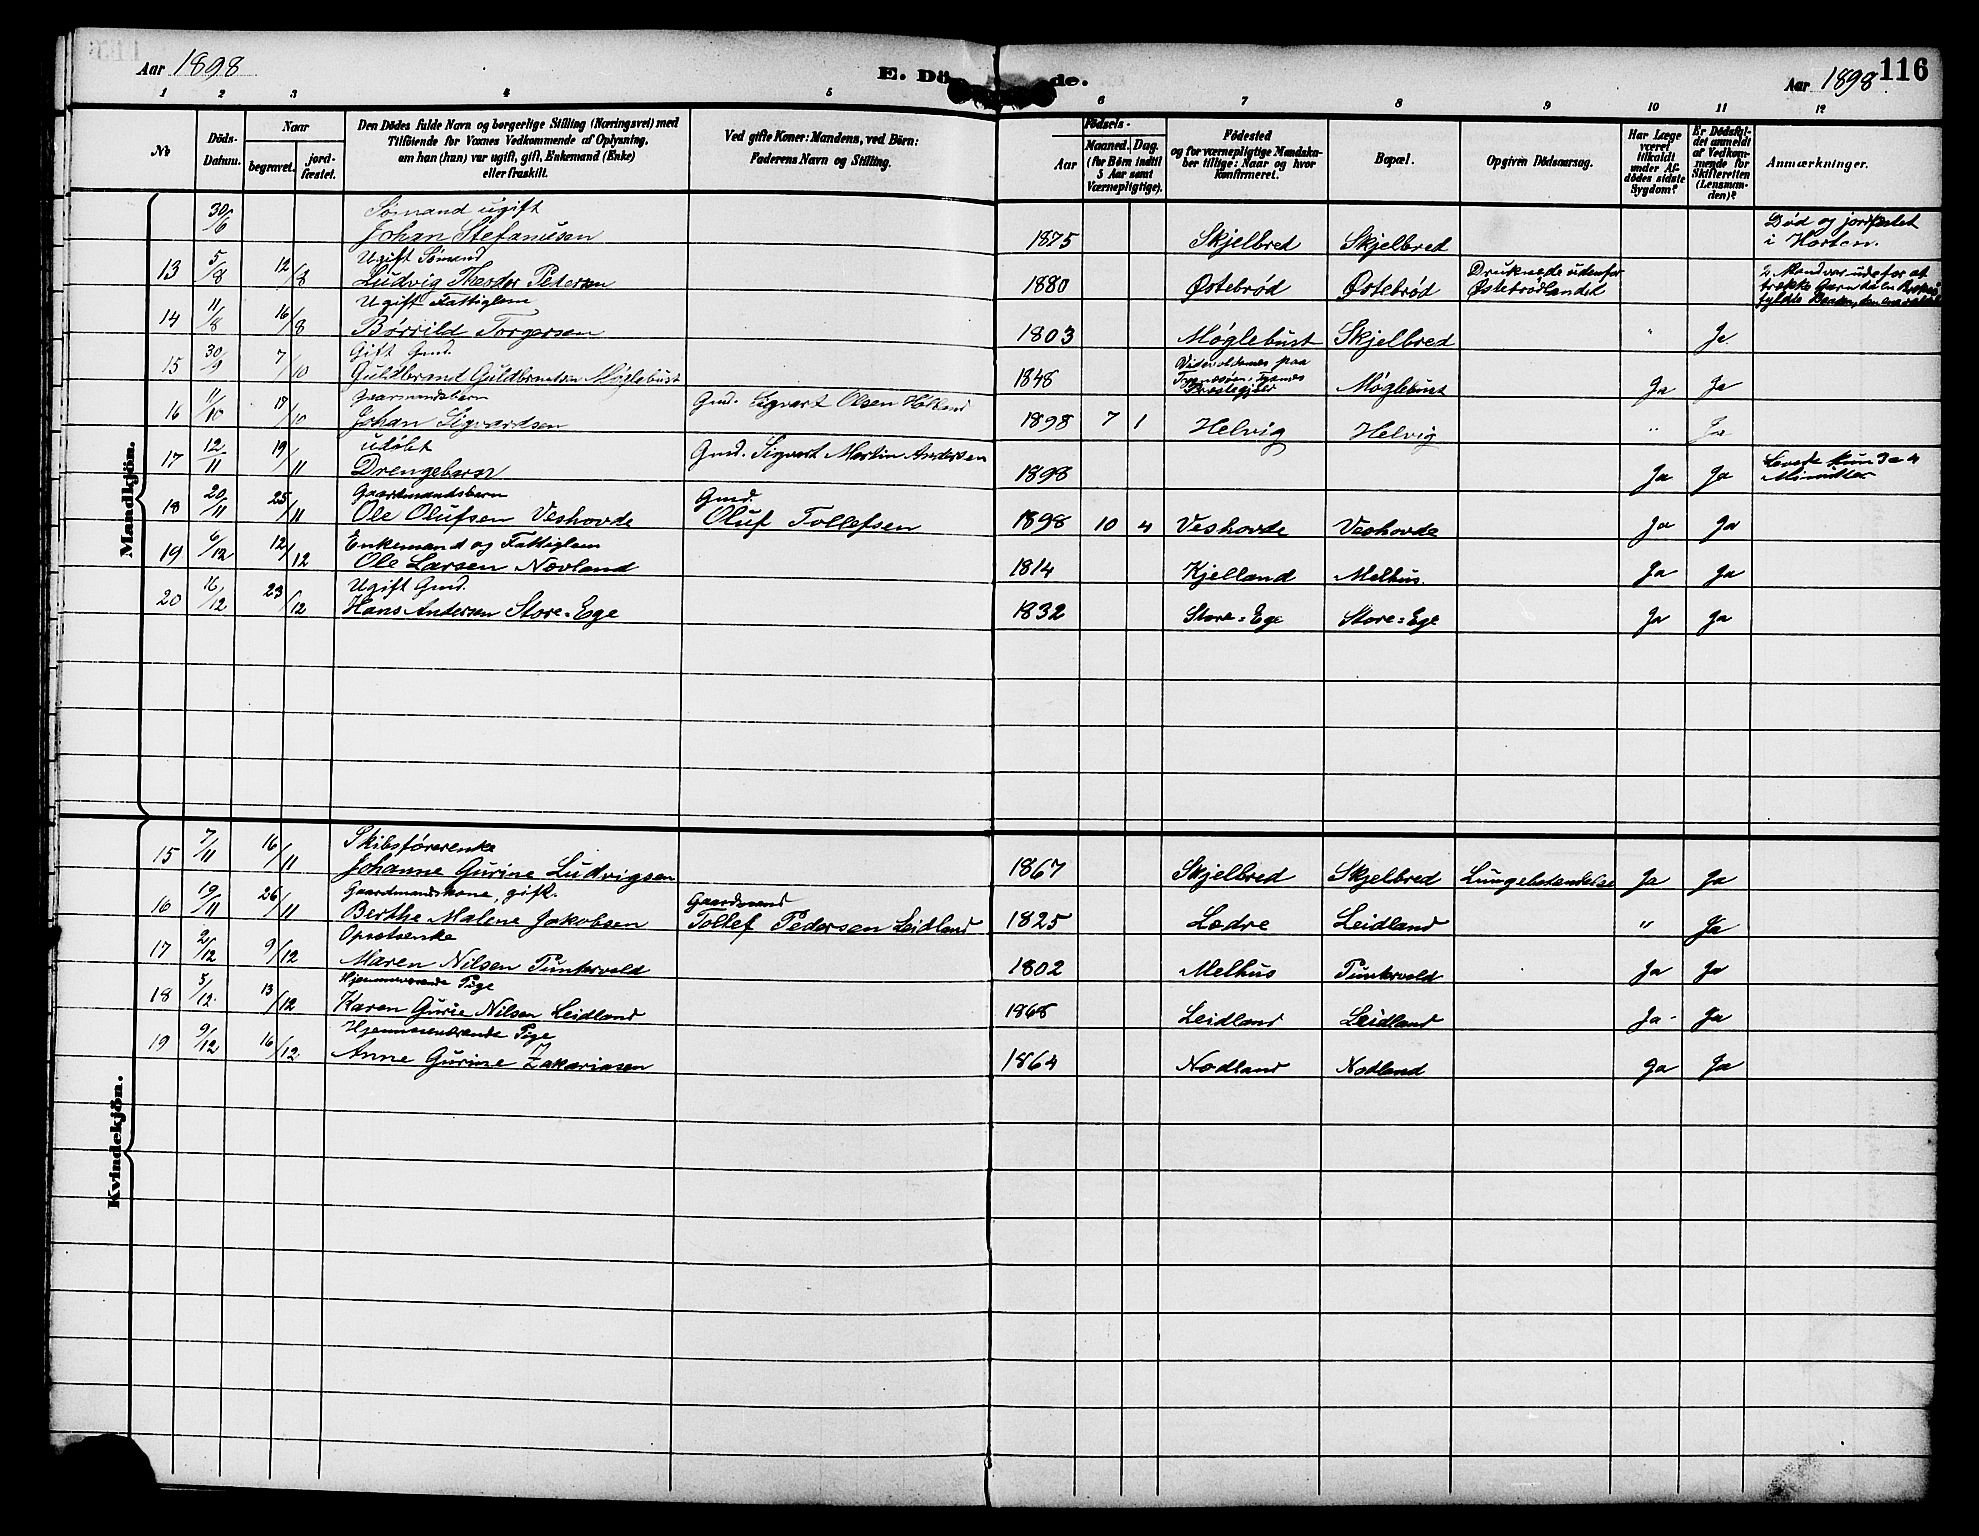 Aar 1898
E. Dö
de.
Aar 1898
116
1 2 3 4 5 6 7 8 9 10 11 12
No
Döds-Datum.
Naar
begravet.
jord-fæstet.
Den Dödes fulde Navn og borgerlige Stilling (Næringsvei) med
Tilföiende for Voxnes Vedkommende af Oplysning,
om han (hun) var ugift, gift, Enkemand (Enke)
eller fraskilt.
Ved gifte Koner: Mandens, ved Börn:
Faderens Navn og Stilling.
Födsels-
Aar
Maaned. Dag.
(for Börn indtil
5 Aar samt
Værnepligtige).
Födested
og for værnepligtige Mandska-
ber tillige: Naar og hvor
konfirmeret.
Bopæl.
Opgiven Dödsaarsag.
Har Læge
været
tilkaldt
under Af-
dödes sidste
Sygdom?
Er Dödsfal-
det anmeldt
af Vedkom-
mende for
Skifteretten
(Lensman-
den)?
Anmærkninger.
Mandkjön.
30/6 Sømand ugift Død og jordfæstet
Johan Stefanusen 1875 Skjelbred Skjelbred i Horten.
13 5/8 12/8 Ugift Sømand Druknede udenfor 2 Mand var ude for at
Ludvig Theodor Petersen 1880 Østebrød Østebrød Østebrødlandet trække Garn da en
fyldte
14 11/8 16/8 Ugift Fattiglem
Børrild Torgersen 1803 Møglebust Skjelbred " Ja
15 30/9 7/10 Gift Gmd. paa
Guldbrand Guldbrandsen Møglebust 1848 Præstegjeld Møglebust Ja Ja
16 11/10 18/10 Gaardmandsbarn Gmd. Sigvart Olsen
Johan Sigvardsen 1898 7 1 Helvig Helvig " Ja
17 12/11 19/11 udøbt Gmd. Sigvart Martin Andersen Levede kun 3 a 4
Drengebarn 1898 Ja Ja Minutter
18 20/11 25/11 Gaardmandsbarn Gmd.
Ole Olufsen Veshovde Oluf Tollefsen 1898 10 4 Veshovde Veshovde Ja Ja
19 6/12 12/12 Enkemand og Fattiglem
Ole Larsen Nævland 1814 Kjelland Melhus. Ja Ja
20 16/12 23/12 Ugift Gmd.
Hans Andersen Store=Ege 1832 Store=Ege Store=Ege Ja Ja
Kvindekjön.
15 7/11 16/11 Skibsførerenke
Johanne Gurine Ludvigsen 1867 Skjelbred Skjelbred Lungebetændelse Ja Ja
16 19/11 26/11 Gaardmandskone, gift. Gaardmand
Berthe Malene Jakobsen Tollef Pedersen Leidland 1825 Lædre Leidland " Ja
17 2/12 9/12
Maren Nilsen Puntervold 1802 Melhus Puntervold Ja Ja
18 5/12 13/12 Hjemmeværende Pige
Karen Gurie Nilsen Leidland 1868 Leidland Leidland Ja Ja
19 9/12 16/12 Hjemmeværende Pige
Anne Gurine Zakariasen 1864 Nodland Nodland Ja Ja